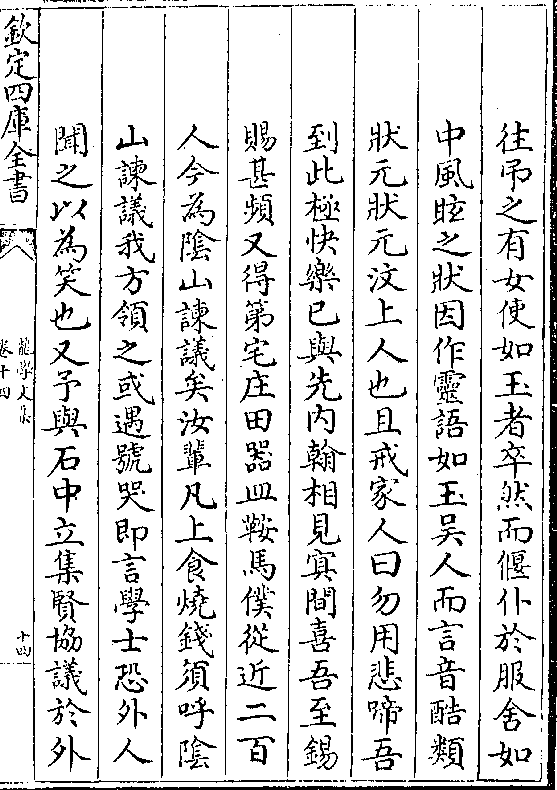 往弔之有女使如玉者卒然而偃仆於服舍如
中風眩之狀因作靈語如玉吳人而言音酷類
狀元狀元汶上人也且戒家人曰勿用悲啼吾
到此極快樂已與先内翰相見寘間喜吾至錫
賜甚頻又得第宅庄田器皿鞍馬僕從近二百
人今為陰山諫議矣汝輩凡上食燒錢須呼陰
山諫議我方領之或遇號哭即言學士恐外人
聞之以為笑也又予與石中立集賢協議於外
欽定四庫全書
龍學文集
卷十四
十四